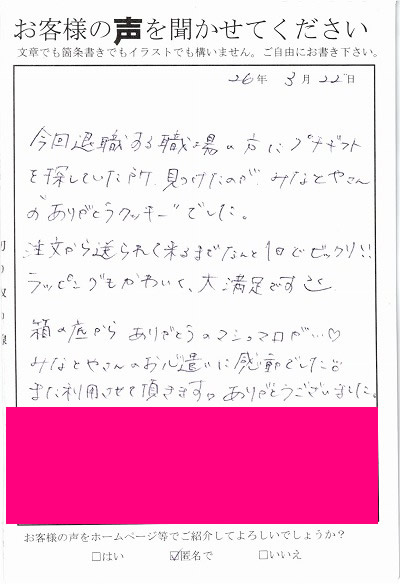 お客様の声を聞かせてください
文章でも箇条書きでもイラストでも構いません。ご自由にお書き下さい。
26年 3月 22日
今回退職する職場の方にプチギフト
を探していた所、見つけたのが、みなとやさん
の"ありがとうクッキー"でした。
注文から送られて来るまでなんと1日でビックリ!!
ラッピングもかわいく、大満足です
箱の底からありがとうのマシュマロが…♡
みなとやさんのお心遣いに感動でした。
また利用させて頂きます。ありがとうございました。
お客様の声をホームページ等でご紹介してよろしいでしょうか?
□はい ☑匿名で □いいえ